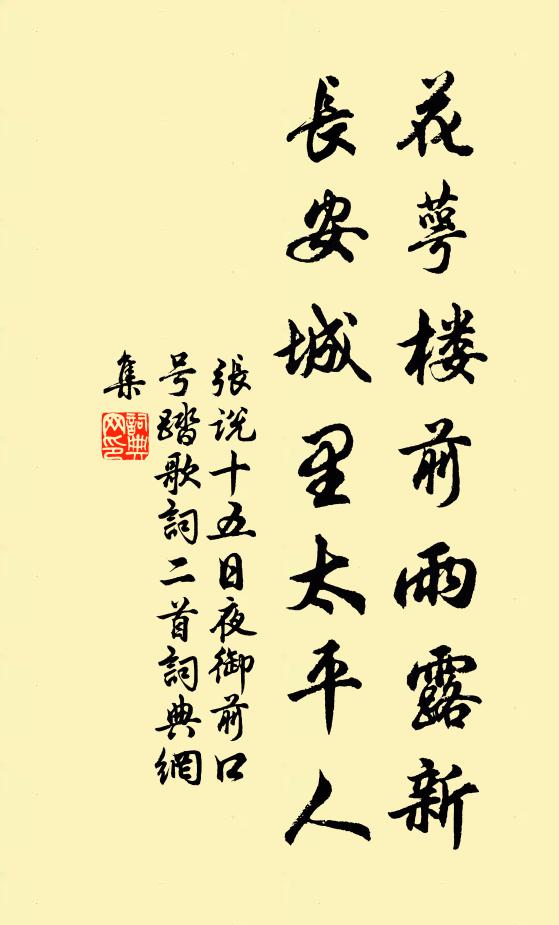 花萼楼前雨露新
長安城里太平人
張说十五日夜御前口
号踏歌詞二首詞典網
集
詞典
网印